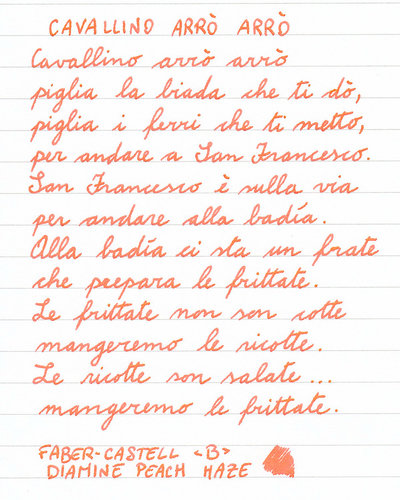 CAVALLINO ARRÒ ARRÒ
Cavallino arrò arrò
piglia la biada che ti dò,
piglia i ferri che ti metto,
per andare a San Francesco.
San Francesco è sulla via
per andare alla badía.
Alla badía ci sta un frate
che prepara le frittate.
Le frittate non son cotte
mangeremo le ricotte.
Le ricotte son salate...
mangeremo le frittate.
FABER-CASTELL <B>
DIAMINE PEACH HAZE